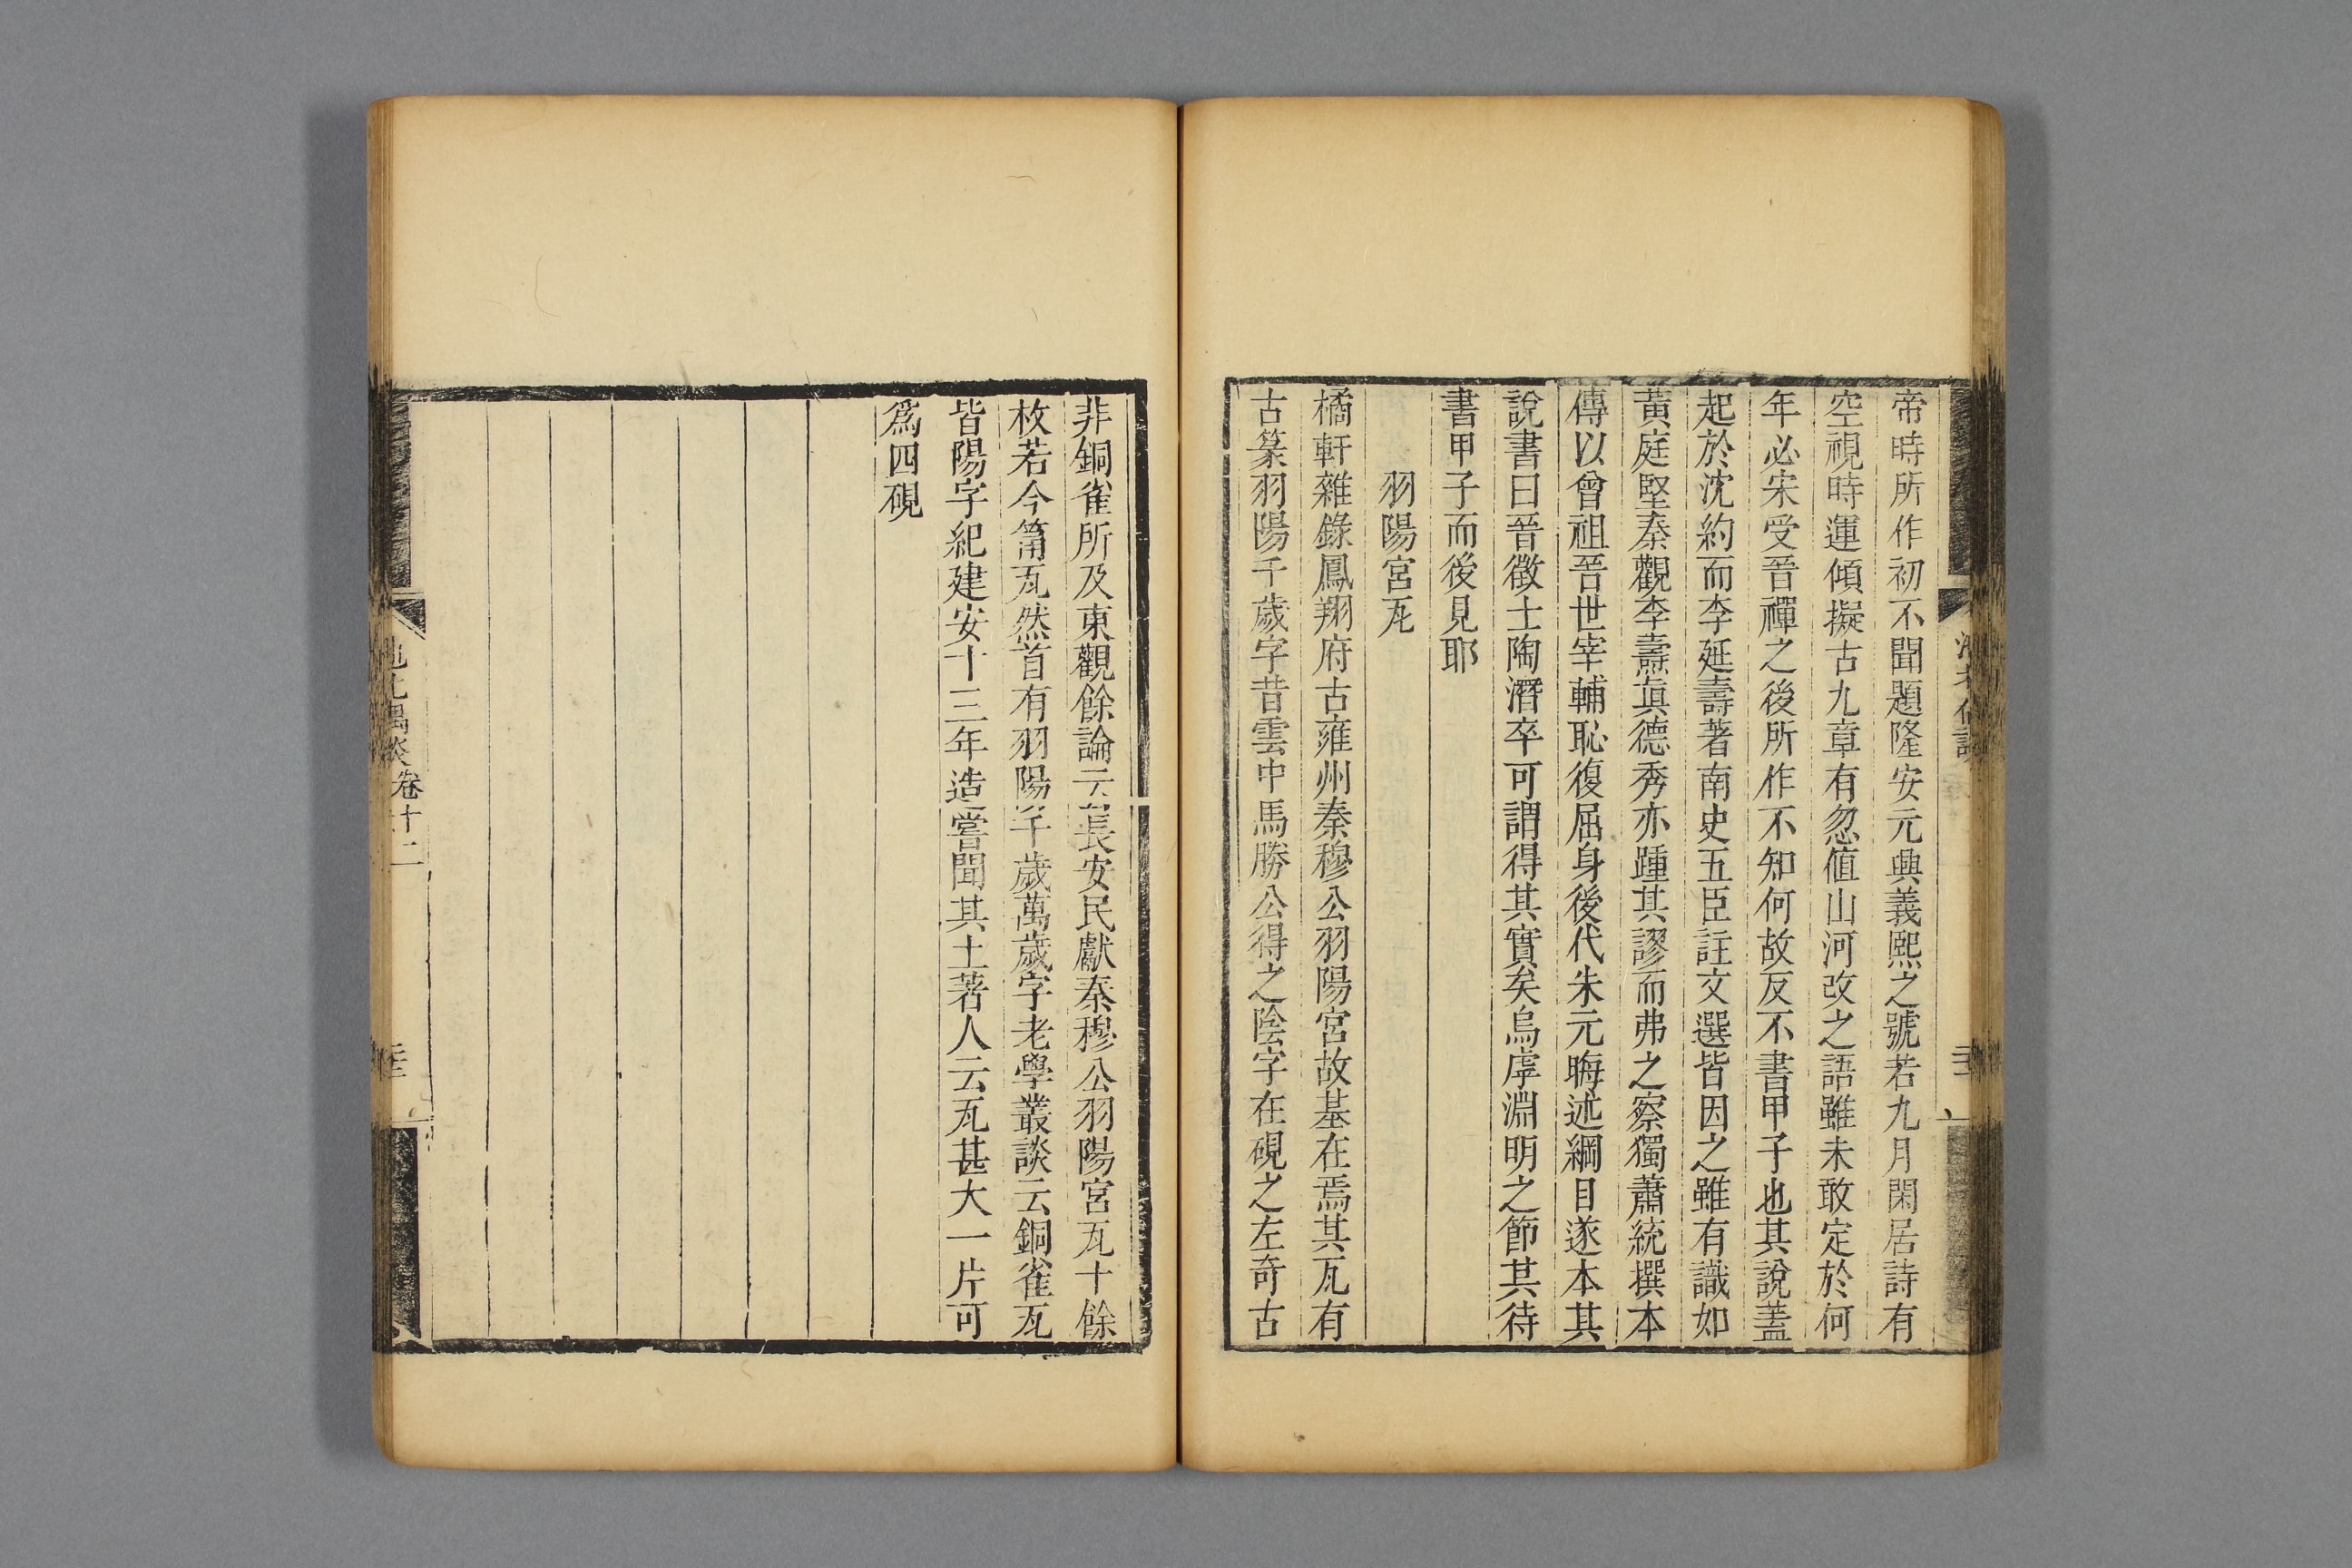 帝時所作初不聞題隆安元興義熙之號若九月閑居詩有
空視時運傾擬古九章有忽值山河改之語雖未敢定於何
年必宋受晉禪之後所作不知何故反不書甲子也其說蓋
起於沈約而李延壽著南史五臣註文選皆因之雖有識如
黃庭堅秦觀李燾真德秀亦踵其謬而弗之察獨蕭統撰本
傳以曾祖晉世宰輔恥復屈身後代朱元晦述綱目遂本其
說書曰晉徵士陶潛卒可謂得其實矣烏虖淵明之節其待
書甲子而後見耶
羽陽宮瓦
橘軒雜錄鳳翔府古雍州秦穆公羽陽宮故基在焉其瓦有
古篆羽陽千歲字昔雲中馬勝公得之陰字在硯之左奇古
非銅雀所及東觀餘論云長安民獻秦穆公羽陽宮瓦十餘
枚若今筩瓦然首有羽陽千歲萬歲字老學叢談云銅雀瓦
皆陽字紀建安十三年造嘗聞其土著人云瓦甚大一片可
為四硯
卷十二